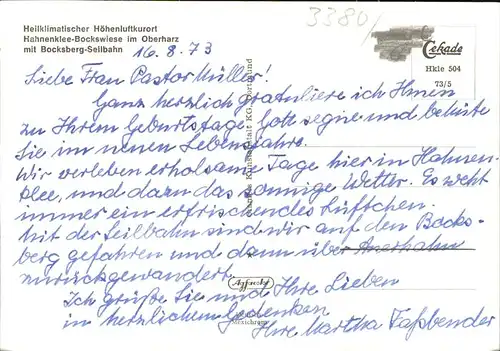 Heilklimatischer Höhenluftkurort
Hahnenklee-Bockswiese im Oberharz
mit Bocksberg-Seilbahn
3380/
Cekade
Hkle 504
73/5
16.8.73
Liebe Frau Pastor Müller!
Ganz herzlich gratuliere ich Ihnen
zu Ihrem Geburtstage. Gott segne und behüte
Sie im neuen Lebensjahre.
Wir verleben erholsame Tage hier in Hahnen-
klee, und dazu das sonnige Wetter. Es weht
immer ein erfrischendes Lüftchen.
Mit der Seilbahn sind wir auf den Bocks-
berg gefahren und dann über Auerhahn
zurückgewandert.
Ich grüße Sie und Ihre Lieben
in herzlichem Gedenken
Ihre Martha Faßbender
KG, Dortmund